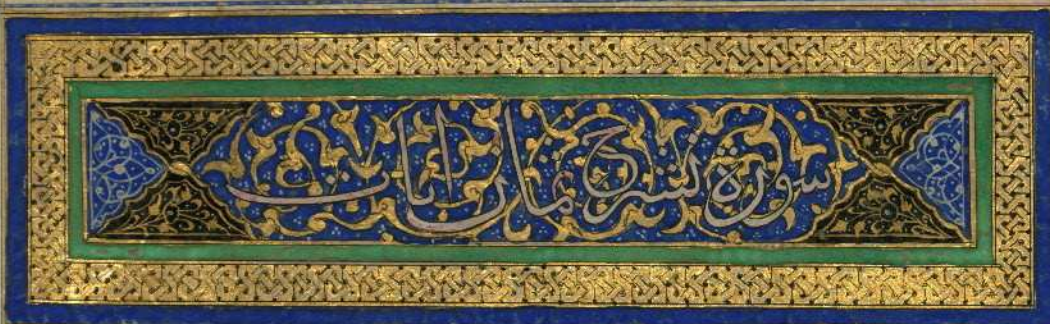 سورة نشرح ثمان ايات